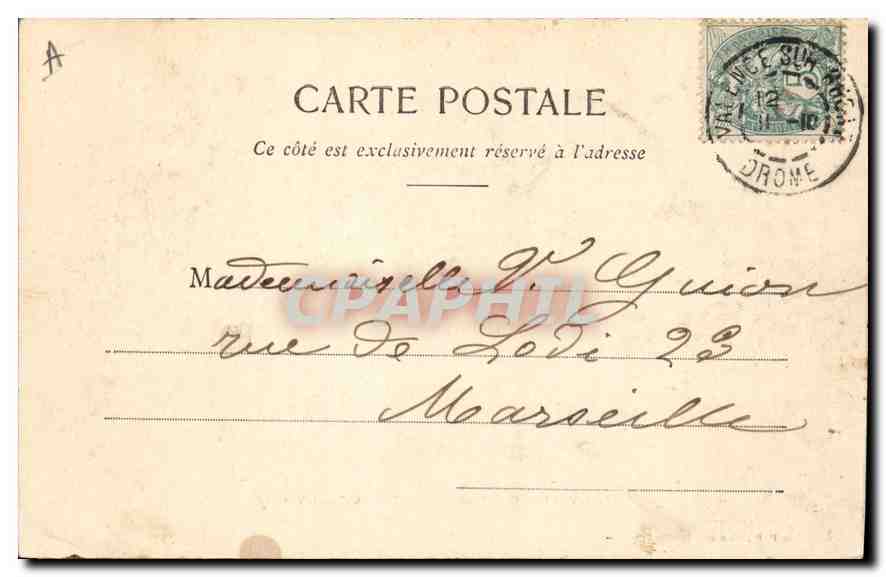 A
CARTE POSTALE
Ce côté est exclusivement réservé à l'adresse
VALENCE SUR RHONE
12
DROME
Mademoiselle V. Guion
rue de Lodi 23
Marseille
CPAPHIL